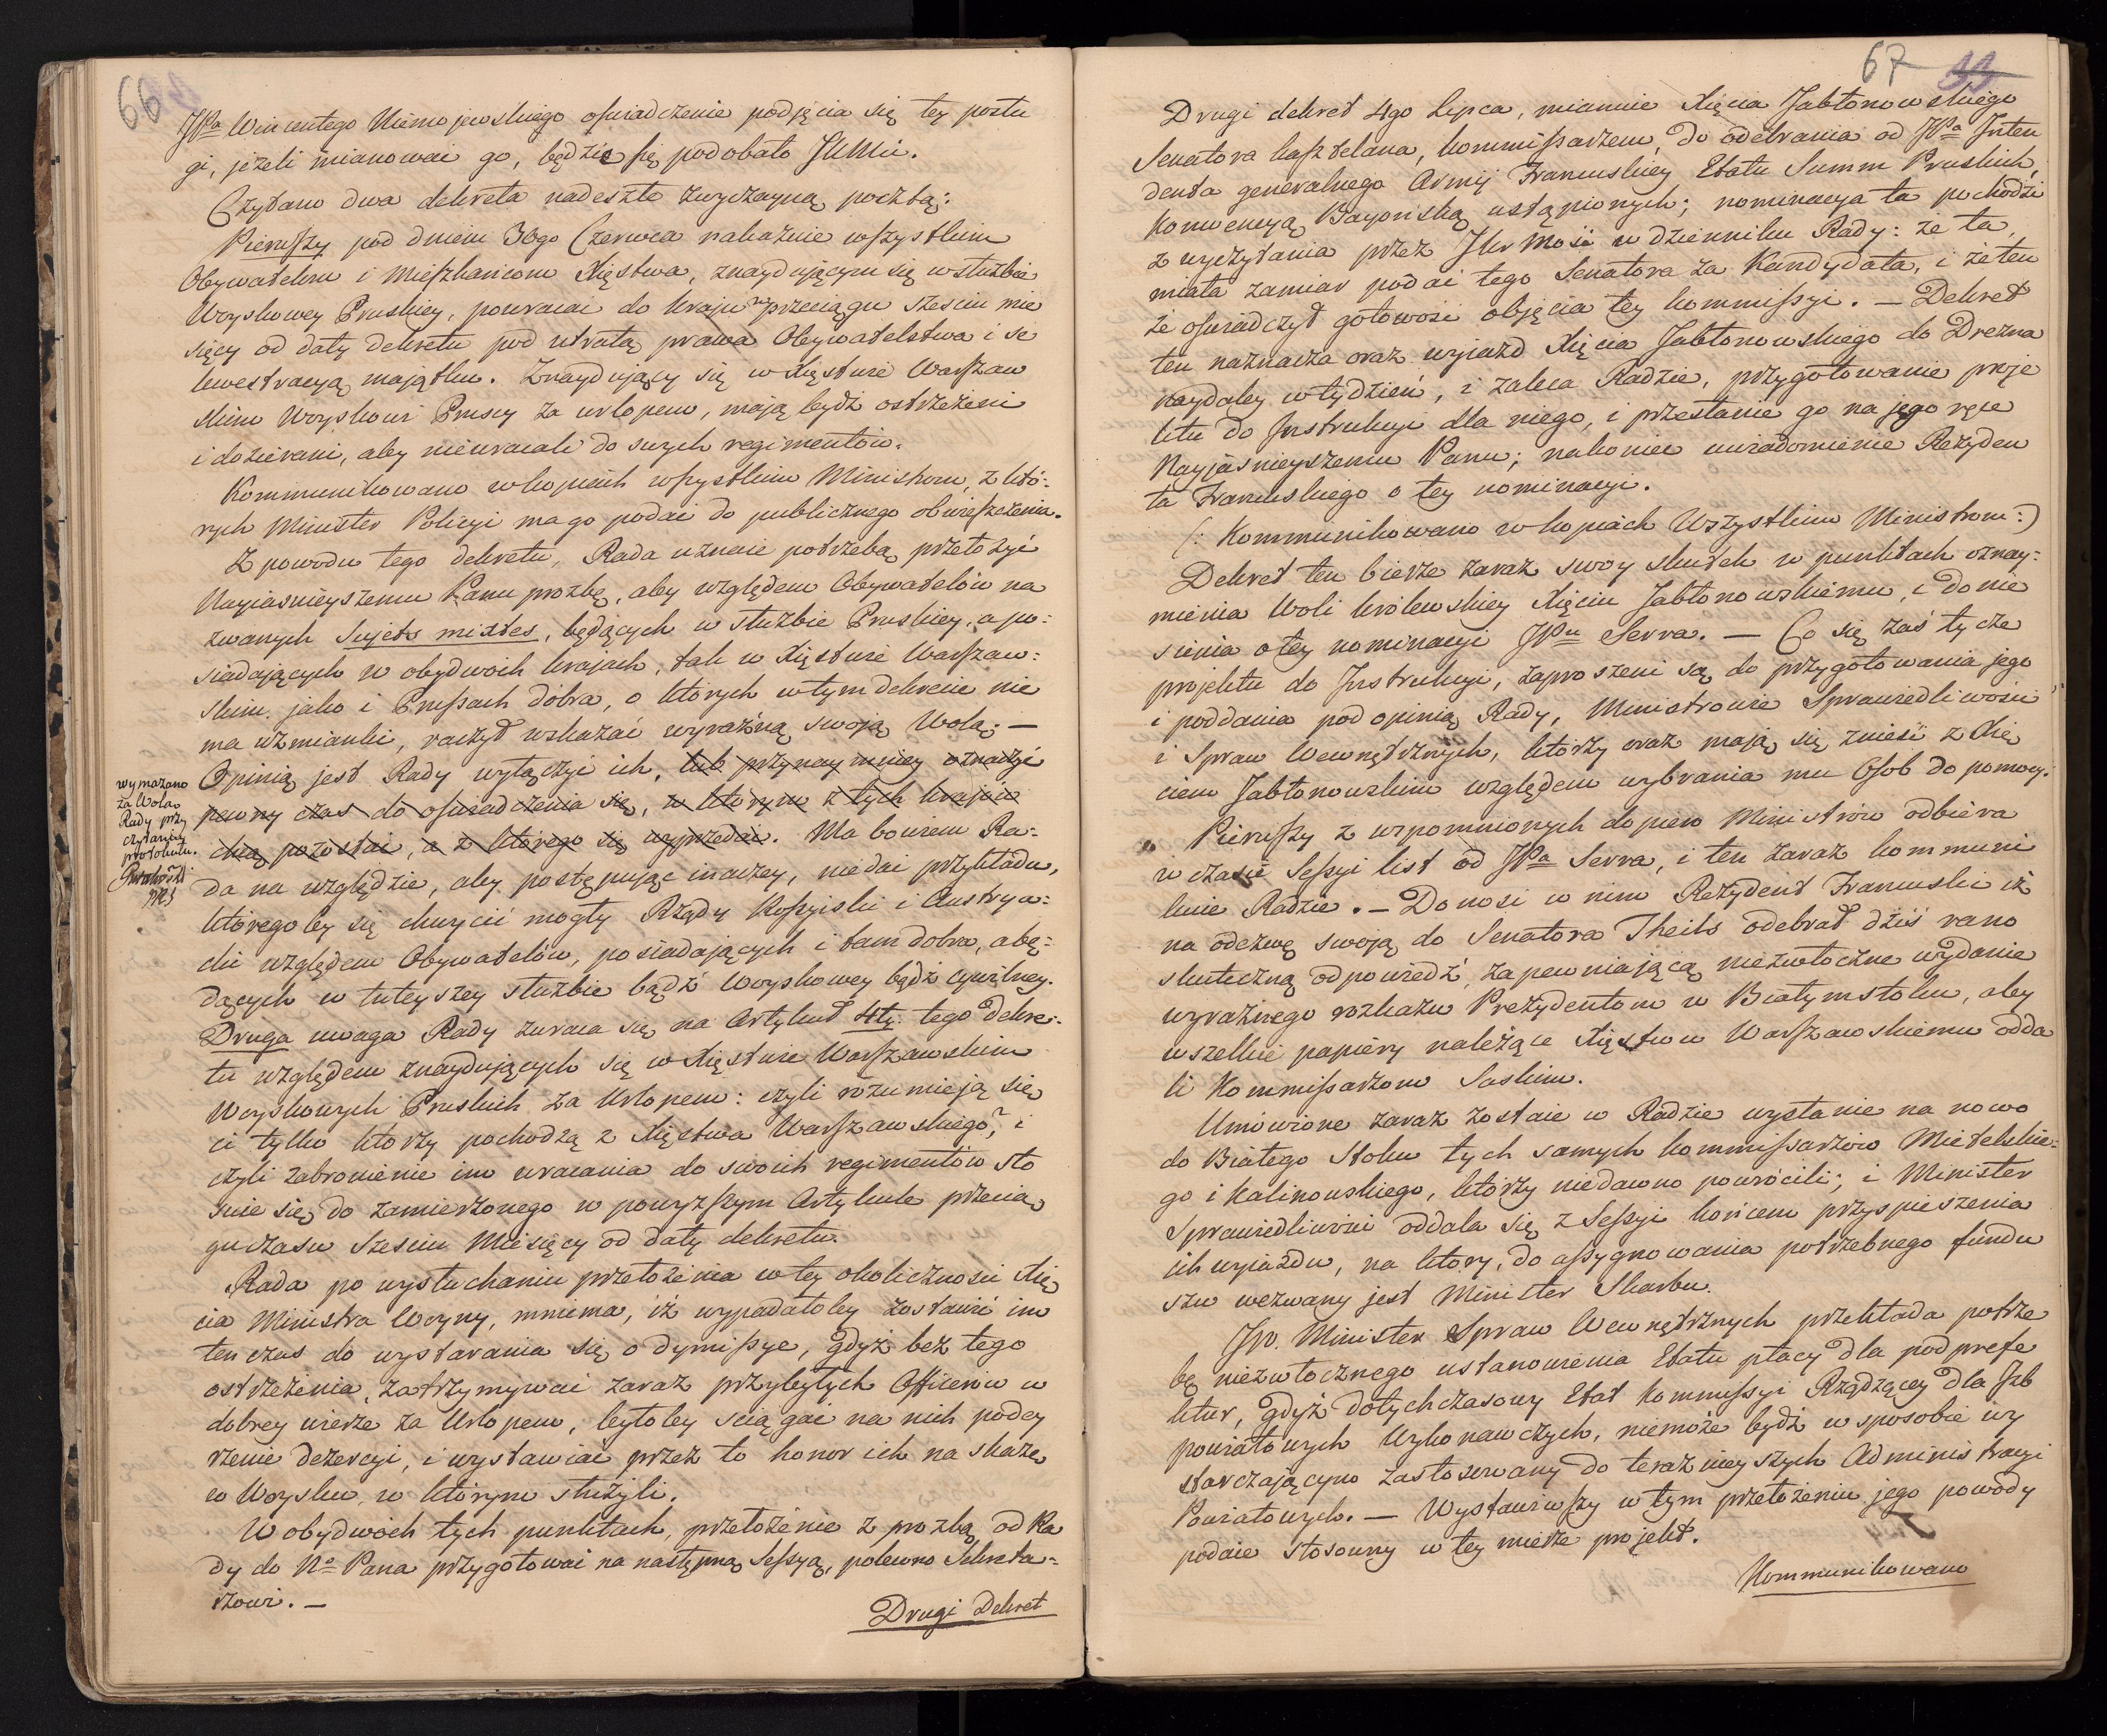 66
JPa Wincentego Niemojewskiego oświadczenie podjęcia się tey posłu
gi, jeżeli mianować go, będzie się podobało JKMci.
Czytano dwa dekreta nadeszłe zwyczayną pocztą:
Pierwszy pod dniem 30go Czerwca nakazuie wszystkim
Obywatelom i Mieszkańcom Xięstwa, znayduiącym się w służbie
Woyskowey Pruskiey, powracać do kraju w przeciągu sześciu mie
sięcy od daty dekretu pod utratą prawa Obywatelstwa i se
kwestracyą majątku. Znayduiący się w Xięstwie Warszaw
skim Woyskowi Pruscy za urlopem, mają bydź ostrzeżeni
i dozierani, aby niewracali do swych regimentów.
Kommunikowano w kopiach wszystkim Ministrom, z któ=
rych Minister Policyi ma go podać do publicznego obwieszczenia.
Z powodu tego dekretu, Rada uznaie potrzebą przełożyć
Nayiasnieyszemu Panu prozbę, aby względem Obywatelów na
zwanych Sujets mixtes, będących w służbie Pruskiey, a po=
siadających w obydwóch krajach, tak w Xięstwie Warszaw=
skim jako i Prussach dobra, o których w tym dekrecie nie
ma wzmianki, raczył wskazać wyraźną swoją Wolą; —
Opinią jest Rady wyłączyć ich, lub przynaymniey oznaczyć
pewny czas do oświadczenia się, w którym z tych krajów
chcą pozostać, a z którego się wyprzedać. Ma bowiem Ra=
wymazano
za Wolą
Rady przy
czytaniu
protokułu.
da na względzie, aby postępując inaczey, niedać przykładu,
któregoby się chwycić mogły Rządy Rossyiski i Austrya=
cki względem Obywatelów, posiadających i tam dobra, abę=
dących w tuteyszey służbie bądź Woyskowey bądź cywilney.
Druga uwaga Rady zwraca się na Artykuł 4ty. tego dekre=
tu względem znayduiących się w Xięstwie Warszawskim
Woyskowych Pruskich za Urlopem: czyli rozumieją się
ci tylko którzy pochodzą z Xięstwa Warszawskiego? i
czyli zabronienie im wracania do swoich regimentów sto
suie się do zamierzonego w powyższym Artykule przecią
gu czasu Sześciu Miesięcy od daty dekretu.
Rada po wysłuchaniu przełożenia w tey okoliczności Xię
cia Ministra Woyny, mniema, iż wypadałoby zostawić im
ten czas do wystarania się o dymissye, gdyż bez tego
ostrzeżenia, zatrzymywać zaraz przybyłych Officerów w
dobrey wierze za Urlopem, byłoby ściągać na nich podey
rzenie dezercyi, i wystawiać przez to honor ich na skazę
w Woysku, w którym służyli.
W obydwóch tych punktach, przełożenie z prozbą od Ra
dy do No Pana przygotować na następną Sessyą, polecono Sekreta=
rzowi. —
Drugi Dekret
67 33
Drugi dekret 4go Lipca, mianuie Xięcia Jabłonowskiego
Senatora kasztelana, kommissarzem, do odebrania od JPa Inten
denta generalnego Armij Francuskiey Etatu Summ Pruskich,
Konwencyą Bayońską ustąpionych; nominacya ta pochodzi
z wyczytania przez JKrMość w dzienniku Rady: że ta,
miała zamiar podać tego Senatora za Kandydata, i że ten
że oświadczył gotowość objęcia tey kommissyi. — Dekret
ten naznacza oraz wyiazd Xięcia Jabłonowskiego do Drezna
naydaley w tydzień, i zaleca Radzie, przygotowanie proje
ktu do Instrukcyi dla niego, i przesłanie go na jego ręce
Nayjaśnieyszemu Panu; nakoniec uwiadomienie Rezyden
ta Francuskiego o tey nominacyi.
(: Kommunikowano w kopiach Wszystkim Ministrom :)
Dekret ten bierze zaraz swoy skutek w punktach oznay=
mienia Woli królewskiey Xięciu Jabłonowskiemu, i donie
sienia o tey nominacyi JPu Serra. — Co się zaś tycze
projektu do Instrukcyi, zaproszeni są do przygotowania jego
i poddania pod opinią Rady, Ministrowie Sprawiedliwości
i Spraw Wewnętrznych, którzy oraz mają się znieść z Xię
ciem Jabłonowskim względem wybrania mu Osob do pomocy.
Pierwszy z wspomnionych dopiero Ministrów odbiera
w czasie Sessyi list od JPa Serra, i ten zaraz kommuni
kuie Radzie. — Donosi w nim Rezydent Francuski iż
na odezwę swoją do Senatora Theils odebrał dziś rano
skuteczną odpowiedź, zapewniającą niezwłoczne wydanie
wyraźnego rozkazu Prezydentom w Białymstoku, aby
wszelkie papiery należące Xięstwu Warszawskiemu odda
li Kommissarzom Saskim.
Umówione zaraz zostaie w Radzie wysłanie na nowo
do Białego Stoku tych samych kommissarzów Mietelskie=
go i Kalinowskiego, którzy niedawno powrócili; i Minister
Sprawiedliwości oddala się z Sessyi końcem przyspieszenia
ich wyiazdu, na który, do assygnowania potrzebnego fundu
szu wezwany jest Minister Skarbu.
JW. Minister Spraw Wewnętrznych przekłada potrze
bę niezwłocznego ustanowienia Etatu płacy dla podprefe
ktur, gdyż dotychczasowy Etat Kommissyi Rządzącey dla Izb
powiatowych Wykonawczych, niemoże bydź w sposobie wy
starczającym zastosowany do teraznieyszych Administracyi
Powiatowych. — Wystawiwszy w tym przełożeniu jego powody
podaie stosowny w tey mierze projekt.
Kommunikowano